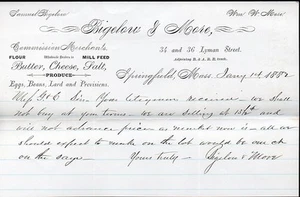 Samuel Bigelow
Wm. W. More
Bigelow & More,
Commission Merchants
34 and 36 Lyman Street.
FLOUR
MILL FEED
Butter, Cheese, Salt,
PRODUCE
Eggs, Beans, Lard and Provisions.
Springfield, Mass. Jany 14 1882
Sir Your letter received we shall
not buy at your terms we are selling at
will not advance price as market now is all we
should expect to make on the lot would be our
on the Yours truly Bigelow & More